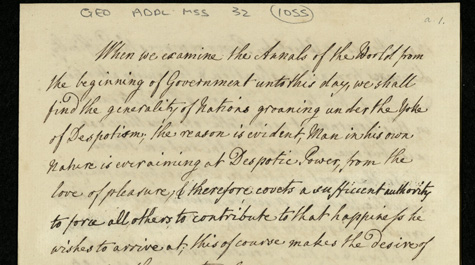 GEO ADDL MSS 32 (1055)
a 1.
When we examine the Annals of the World from
the beginning of Government unto this day, we shall
find the generality of Nations groaning under the Yoke
of Despotism; the reason is evident, Man in his own
nature is ever aiming at Despotic Power, from the
love of pleasure, therefore covets a sufficient authority
to force all others to contribute to that happiness he
wishes to arrive at; this of course makes the desire of